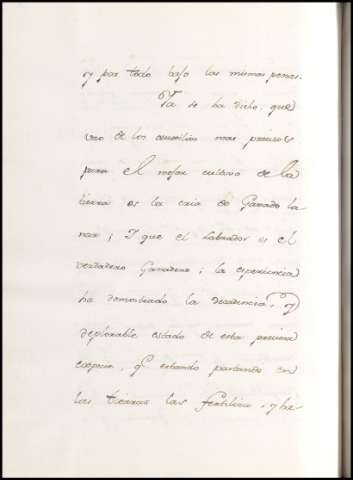 y por todo bajo las mismas penas.
Ya se ha dicho, que
uno de los auxilios mas precisos
para el mejor cultivo de la
tierra es la cria de Ganado la-
nar; Y que el Labrador es el
verdadero Ganadero; la esperiencia
ha demostrado la decadencia, y
deplorable estado de esta preciosa
especie, q estando pastando en
las tierras las fertiliza, y be-